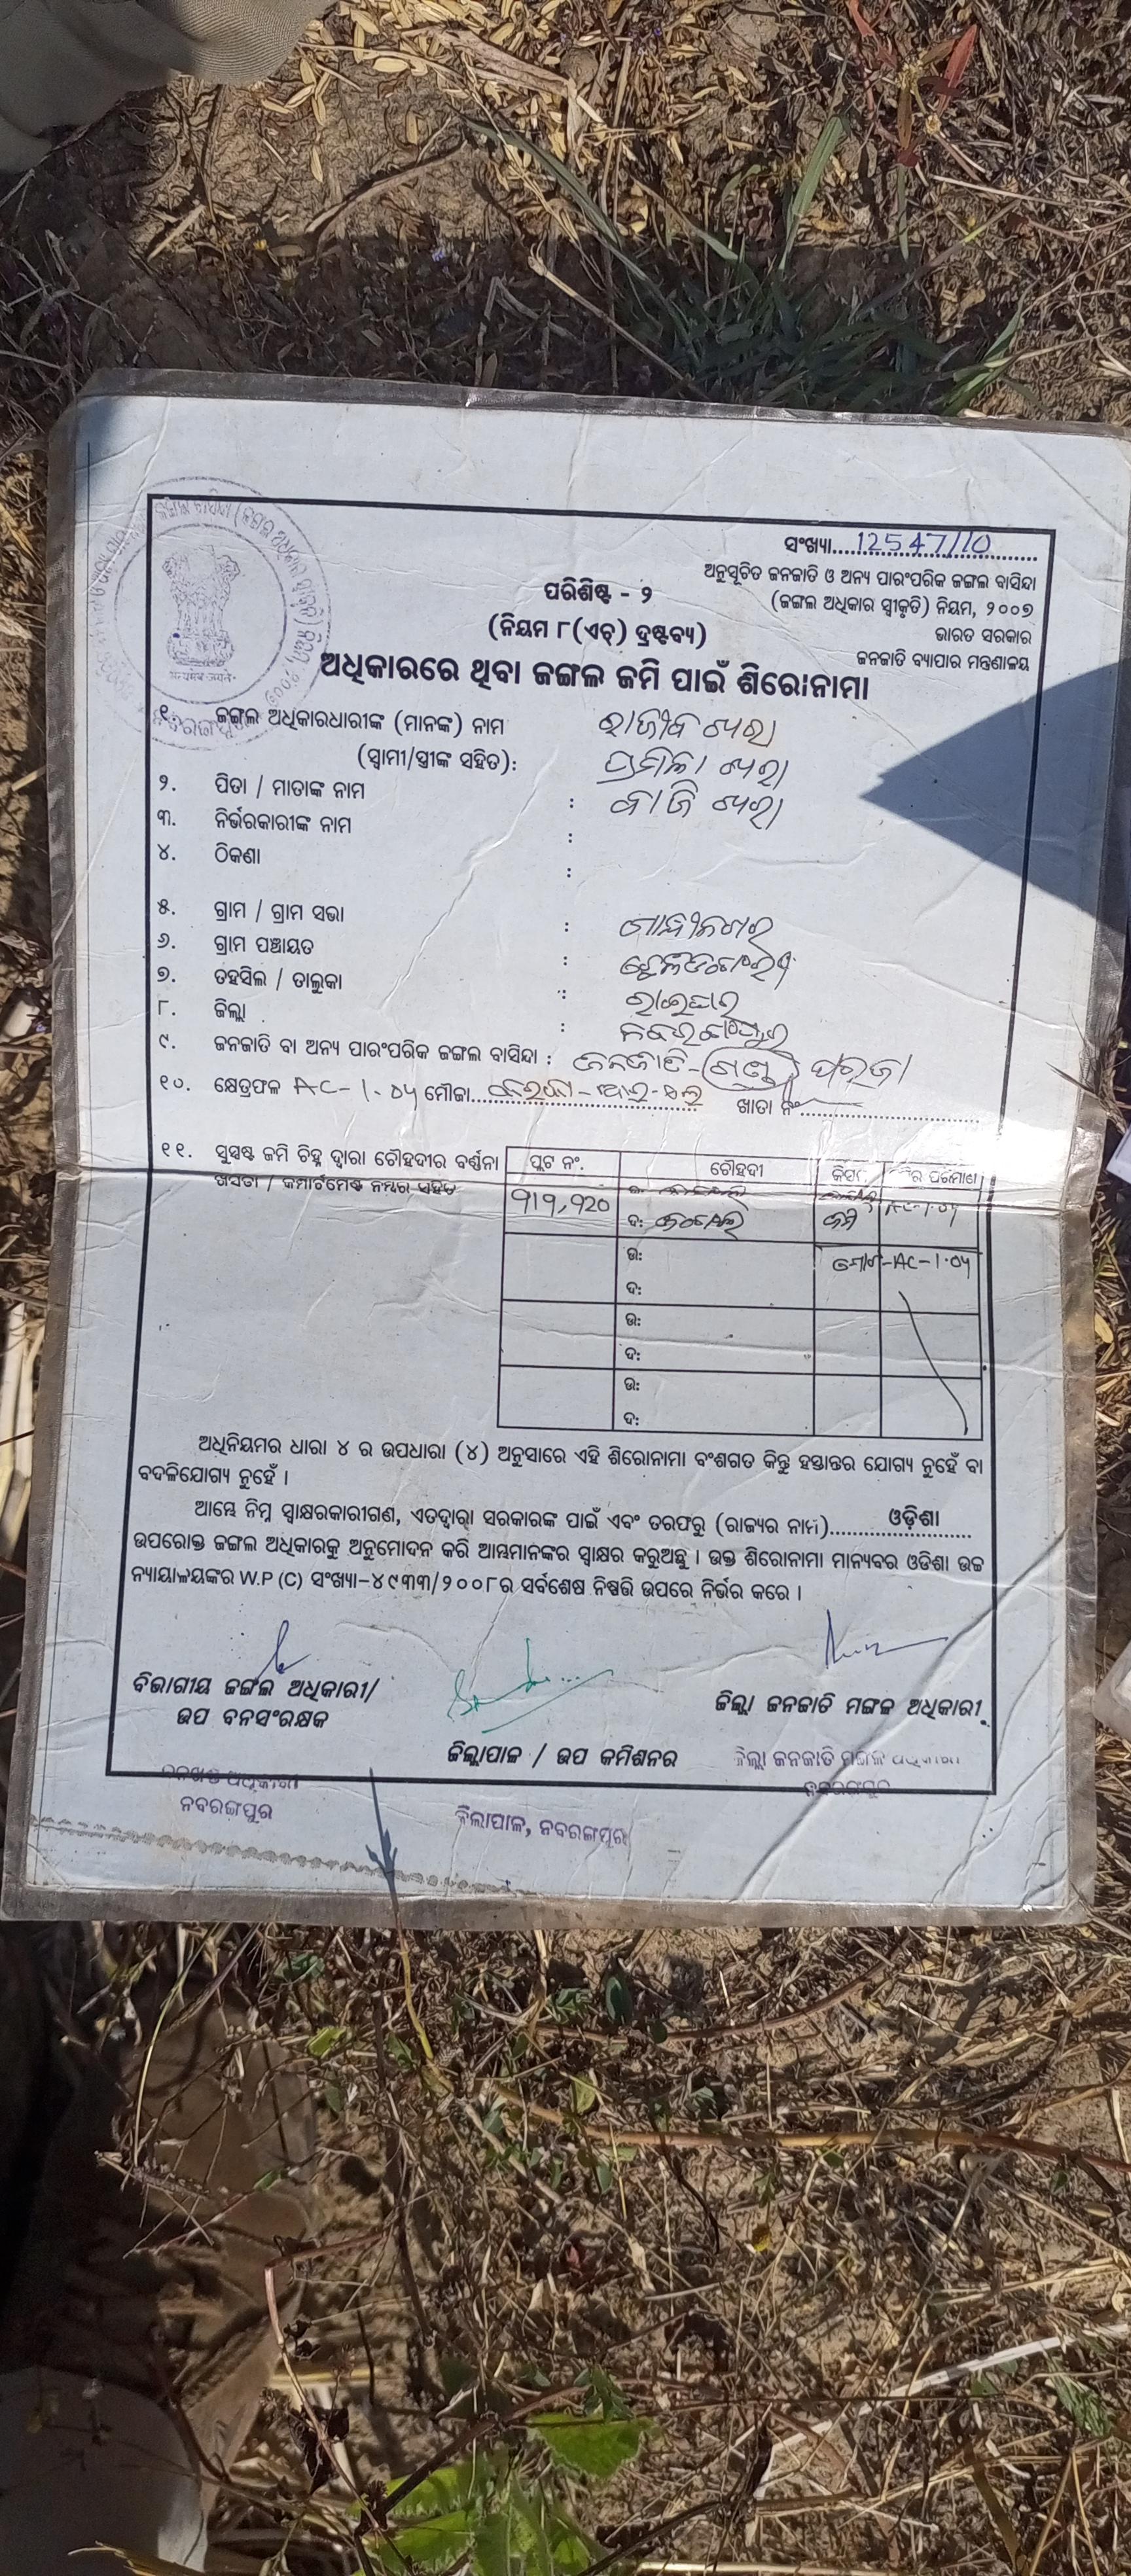 ସଂଖ୍ୟା....12547/10....
ଅନୁସୂଚିତ ଜନଜାତି ଓ ଅନ୍ୟ ପାରଂପରିକ ଜଙ୍ଗଲ ବାସିନ୍ଦା
(ଜଙ୍ଗଲ ଅଧିକାର ସ୍ୱୀକୃତି) ନିୟମ, ୨୦୦୭
ଭାରତ ସରକାର
ଜନଜାତି ବ୍ୟାପାର ମନ୍ତ୍ରଣାଳୟ
ପରିଶିଷ୍ଟ - ୨
(ନିୟମ ୮(ଏଚ୍) ଦ୍ରଷ୍ଟବ୍ୟ)
ଅଧିକାରରେ ଥିବା ଜଙ୍ଗଲ ଜମି ପାଇଁ ଶିରୋନାମା
୧. ଜଙ୍ଗଲ ଅଧିକାରଧାରୀଙ୍କ (ମାନଙ୍କ) ନାମ
(ସ୍ୱାମୀ/ସ୍ତ୍ରୀଙ୍କ ସହିତ) : ପ୍ରମିଳା
୨. ପିତା / ମାତାଙ୍କ ନାମ :
୩. ନିର୍ଭରକାରୀଙ୍କ ନାମ :
୪. ଠିକଣା :
୫. ଗ୍ରାମ / ଗ୍ରାମ ସଭା : ଗାନ୍ଧୀନଗର
୬. ଗ୍ରାମ ପଞ୍ଚାୟତ :
୭. ତହସିଲ / ତାଲୁକା : ରାଇଘର
୮. ଜିଲ୍ଲା : ନବରଙ୍ଗପୁର
୯. ଜନଜାତି ବା ଅନ୍ୟ ପାରଂପରିକ ଜଙ୍ଗଲ ବାସିନ୍ଦା : ଜନଜାତି - ପରଜା
୧୦. କ୍ଷେତ୍ରଫଳ AC-1.04 ମୌଜା.... ଖାତା ନଂ....
୧୧. ସୁସ୍ପଷ୍ଟ ଜମି ଚିହ୍ନ ଦ୍ୱାରା ଚୌହଦୀର ବର୍ଣ୍ଣନା
ଖସଡା / କମ୍ପାର୍ଟମେଣ୍ଟ ନମ୍ବର ସହିତ
ପ୍ଲଟ ନଂ. ଚୌହଦୀ କିସମ ପରିମାଣ
ଦ: ଜମି AC-1.04
ଉ: ମୋଟ-AC-1.04
ଦ:
ଉ:
ଦ:
ଉ:
ଦ:
ଅଧିନିୟମର ଧାରା ୪ ର ଉପଧାରା (୪) ଅନୁସାରେ ଏହି ଶିରୋନାମା ବଂଶଗତ କିନ୍ତୁ ହସ୍ତାନ୍ତର ଯୋଗ୍ୟ ନୁହେଁ ବା
ବଦଳିଯୋଗ୍ୟ ନୁହେଁ ।
ଆମ୍ଭେ ନିମ୍ନ ସ୍ୱାକ୍ଷରକାରୀଗଣ, ଏତଦ୍ୱାରା ସରକାରଙ୍କ ପାଇଁ ଏବଂ ତରଫରୁ (ରାଜ୍ୟର ନାମ)....ଓଡ଼ିଶା....
ଉପରୋକ୍ତ ଜଙ୍ଗଲ ଅଧିକାରକୁ ଅନୁମୋଦନ କରି ଆମ୍ଭମାନଙ୍କର ସ୍ୱାକ୍ଷର କରୁଅଛୁ । ଉକ୍ତ ଶିରୋନାମା ମାନ୍ୟବର ଓଡିଶା ଉଚ୍ଚ
ନ୍ୟାୟାଳୟଙ୍କର W.P (C) ସଂଖ୍ୟା-୪୯୩୩/୨୦୦୮ର ସର୍ବଶେଷ ନିଷ୍ପତ୍ତି ଉପରେ ନିର୍ଭର କରେ ।
ବିଭାଗୀୟ ଜଙ୍ଗଲ ଅଧିକାରୀ/
ଉପ ବନସଂରକ୍ଷକ
ଜିଲ୍ଲାପାଳ / ଉପ କମିଶନର
ଜିଲ୍ଲା ଜନଜାତି ମଙ୍ଗଳ ଅଧିକାରୀ
ଜିଲ୍ଲା ଜନଜାତି ମଙ୍ଗଳ ଅଧିକାରୀ
ନବରଙ୍ଗପୁର
ବନଖଣ୍ଡ ଅଧିକାରୀ
ନବରଙ୍ଗପୁର
ଜିଲାପାଳ, ନବରଙ୍ଗପୁର